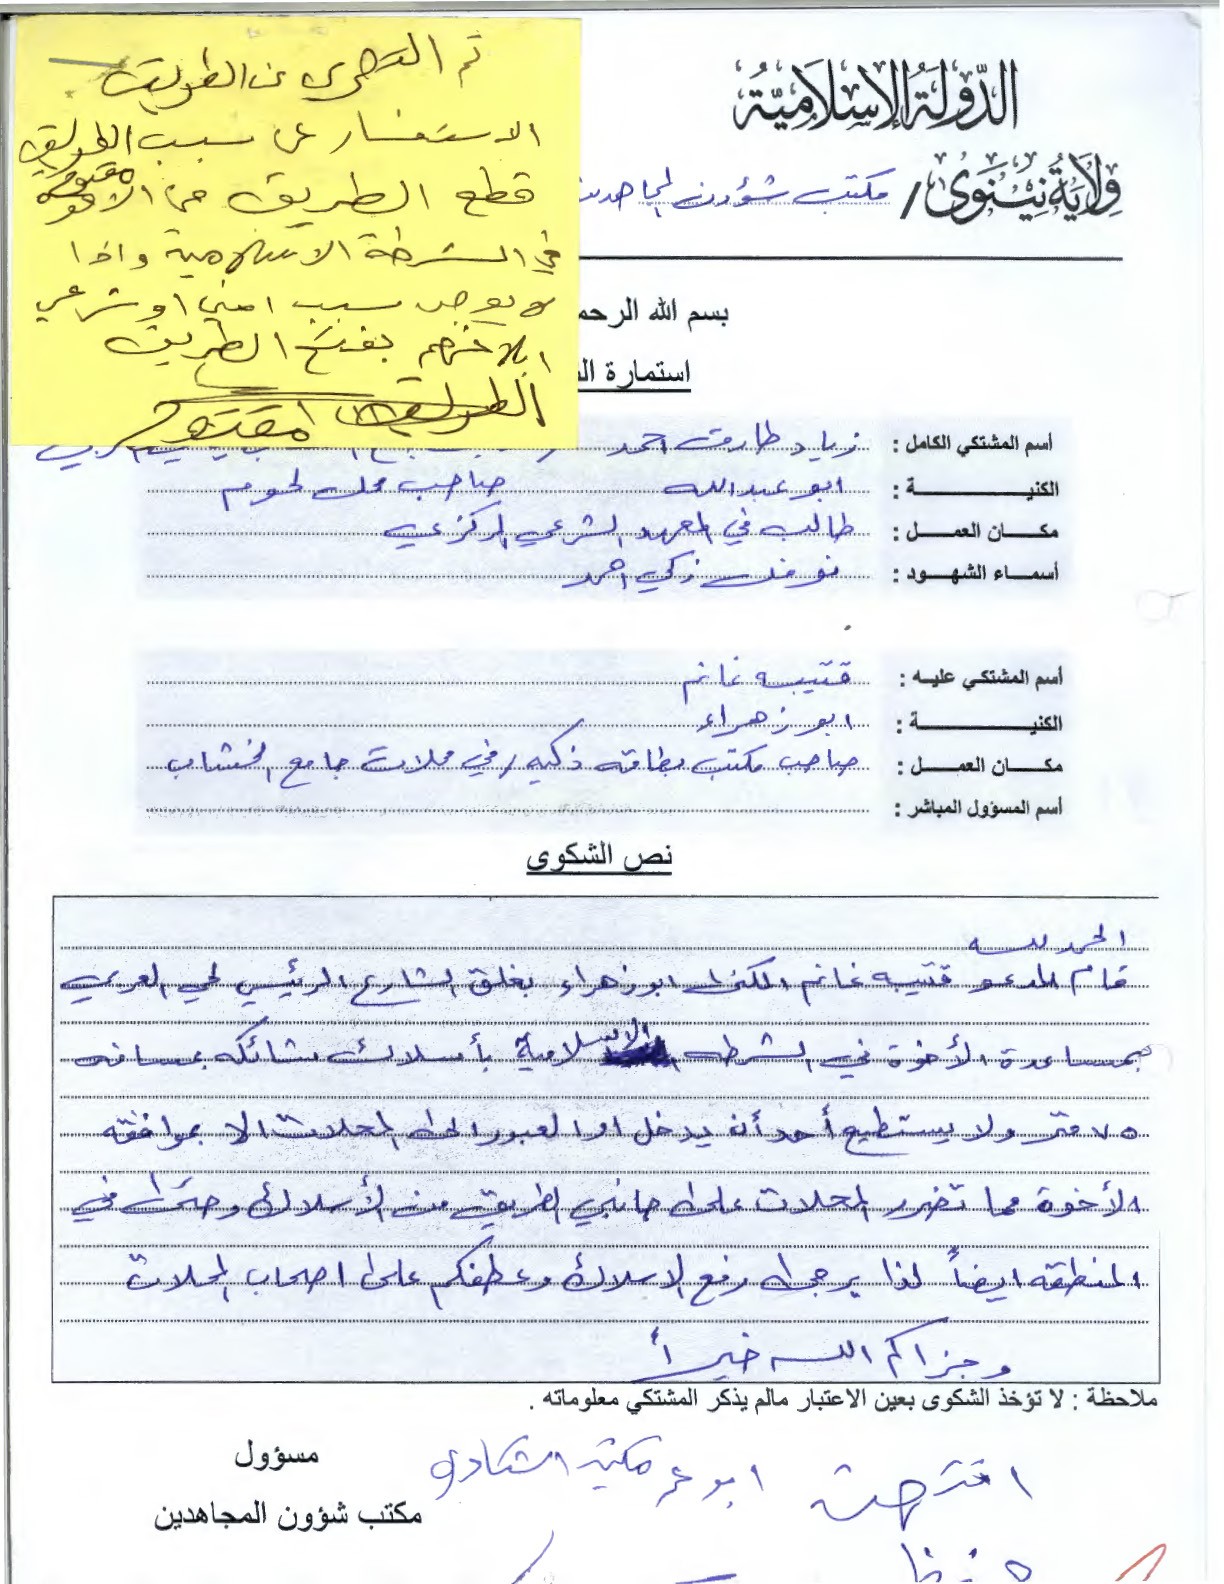 الدّولة الإسلاميّة
ولاية نينوى / مكتب شؤون المجاهدين
تم التحري عن الطريق
الاستفسار عن سبب
قطع الطريق من الاخوة
في الشرطة الاسلامية واذا
لا يوجد سبب امني او شرعي
ابلاغهم بفتح الطريق
الطريق مفتوح
بسم الله الرحم
استمارة ال
أسم المشتكي الكامل : زياد طارق احمد
الكنيــــــة : ابو عبدالله صاحب محل لحوم
مكـــان العمـــل : طالب في المعهد الشرعي المركزي
أسمـــاء الشهـــود : نوفل زكي احمد
أسم المشتكي عليـه : قتيبه غانم
الكنيــــــة : ابو زهراء
مكـــان العمـــل : صاحب مكتب بطاقه ذكيه / في محلات جامع الخشاب
أسم المسؤول المباشر :
نص الشكوى
الحمد لله
قام المدعو قتيبه غانم المكنى ابو زهراء بغلق الشارع الرئيسي لحي العربي
بمساعدة الأخوة في الشرطه الاسلامية بأسلاك شائكه بمسافه
٧٥ متر ولا يستطيع أحد أن يدخل او العبور الى المحلات الا بموافقه
الأخوة مما تضرر المحلات على جانبي الطريق من الأسلاك وحتى في
المنطقه ايضاً لذا يرجى رفع الاسلاك وعطفكم على اصحاب المحلات
وجزاكم الله خيراً
ملاحظة : لا تؤخذ الشكوى بعين الاعتبار مالم يذكر المشتكي معلوماته .
مسؤول
مكتب شؤون المجاهدين
ابو عمر